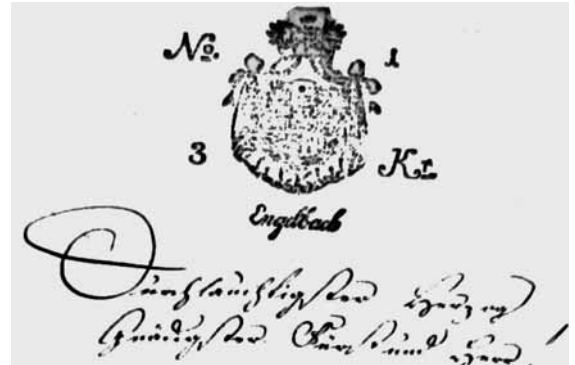 No. 1
3 Kr.
Engelbach
Durchlauchtigster Herzog
Gnädigster Fürst und Herr!